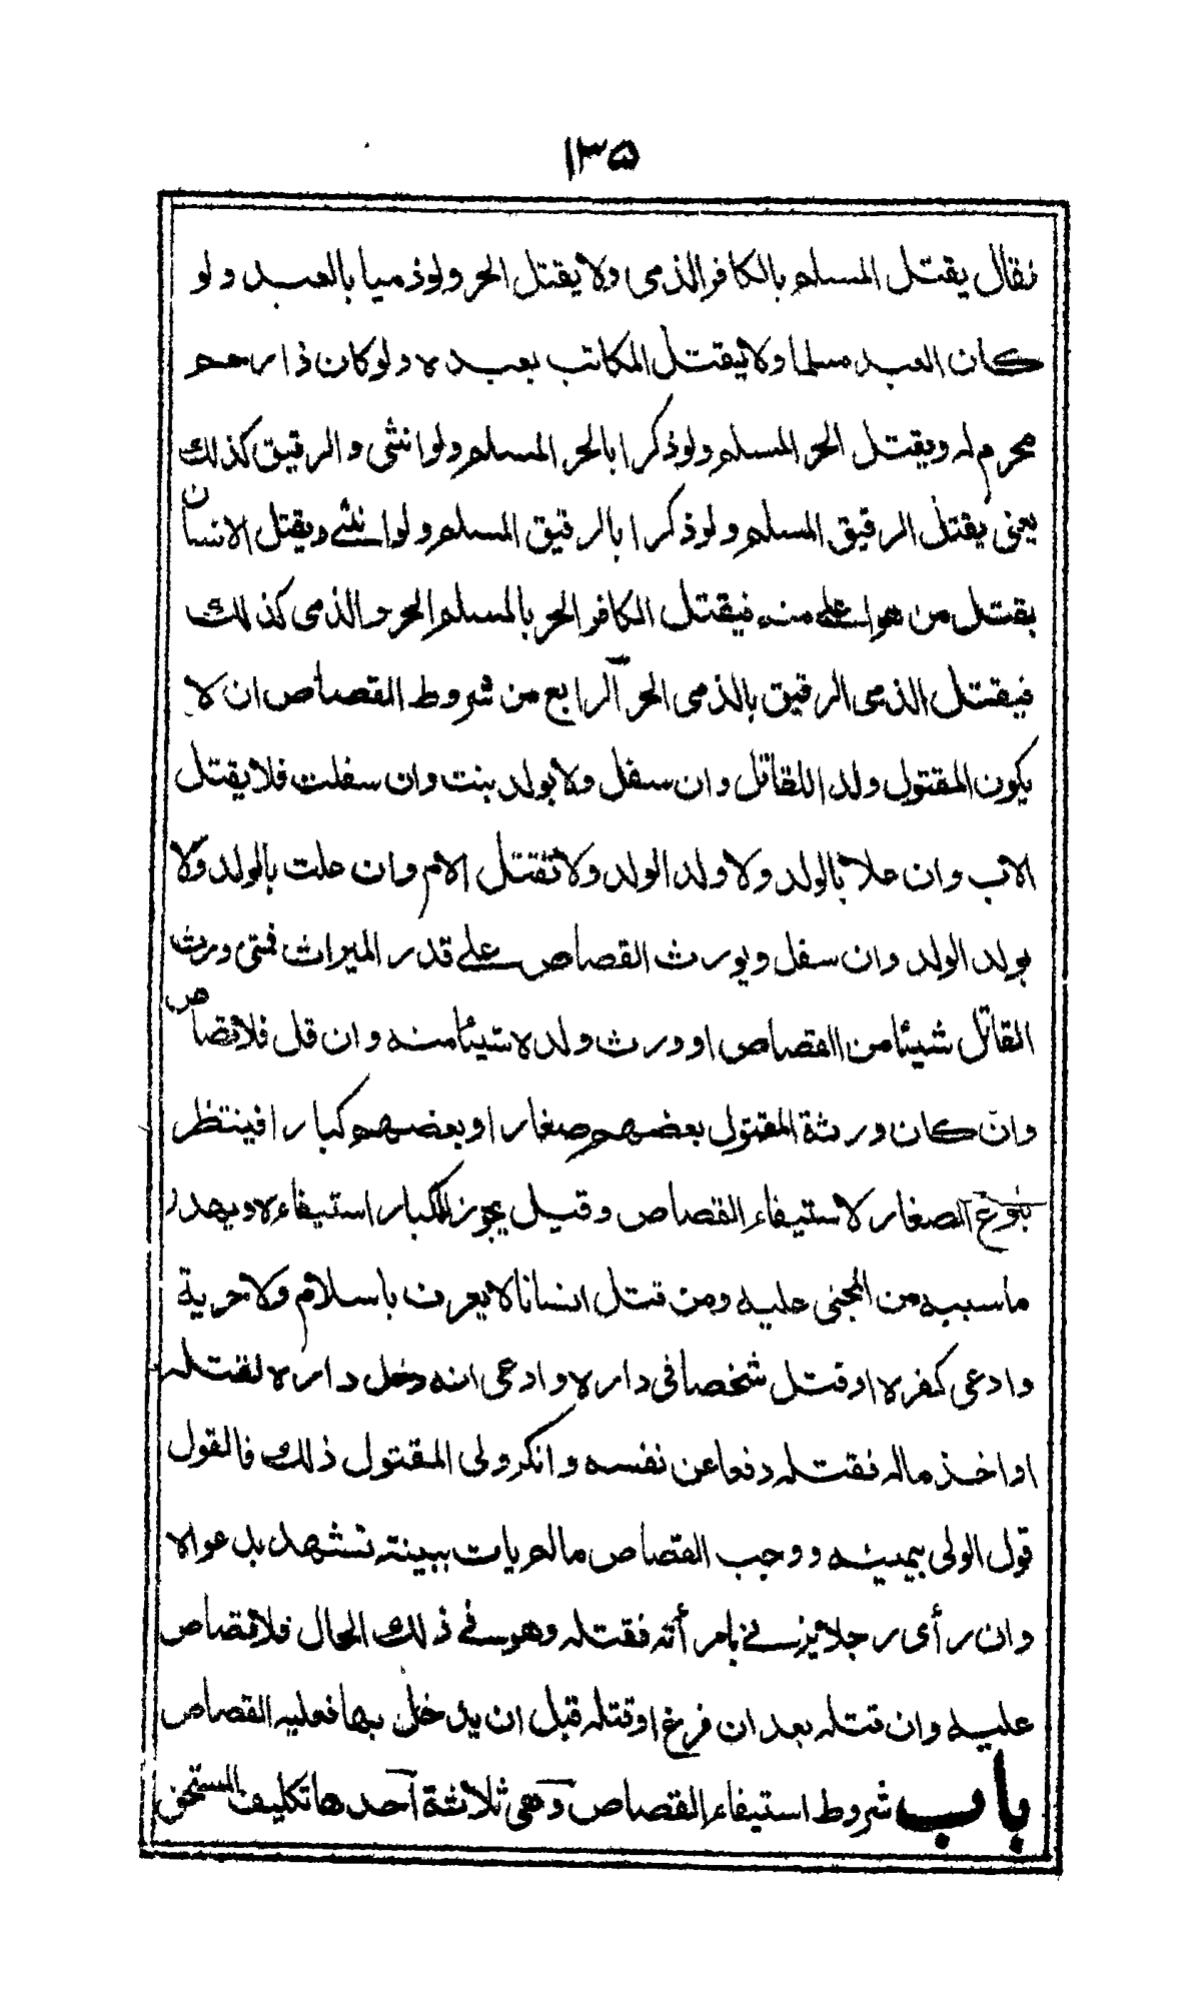 ١٣٥
فقال يقتل المسلم بالكافر الذمى ولا يقتل الحر ولو ذميا بالعبد ولو
كان العبد مسلما ولا يقتل المكاتب بعبده ولو كان ذا رحم
محرم له ويقتل الحر المسلم ولو ذكرا بالحر المسلم ولو انثى والرقيق كذلك
يعنى يقتل الرقيق المسلم ولو ذكرا بالرقيق المسلم ولو انثى ويقتل الانسان
بقتل من هو اعلى منه فيقتل الكافر الحر بالمسلم الحر والذمى كذلك
فيقتل الذمى الرقيق بالذمى الحر الرابع من شروط القصاص ان لا
يكون المقتول ولدا للقاتل وان سفل ولا بولد بنت وان سفلت فلا يقتل
الاب وان علا بالولد ولا ولد الولد ولا تقتل الام وان علت بالولد ولا
بولد الولد وان سفل ويورث القصاص على قدر الميراث فمتى ورث
القاتل شيئا من القصاص او ورث ولده شيئا منه وان قل فلا قصاص
وان كان ورثة المقتول بعضهم صغارا وبعضهم كبارا فينتظر
بلوغ الصغار لاستيفاء القصاص وقيل يجوز للكبار استيفاءه ويهدر
ما سببه من المجنى عليه ومن قتل انسانا لا يعرف باسلام ولا حرية
وادعى كفره او قتل شخصا فى داره وادعى انه دخل داره لقتله
او اخذ ماله فقتله دفعا عن نفسه وانكر ولى المقتول ذلك فالقول
قول الولى بيمينه ووجب القصاص ما لم يات ببينة تشهد بدعواه
وان رأى رجلا يزنى بامرأته فقتله وهو فى ذلك الحال فلا قصاص
عليه وان قتله بعد ان فرغ او قتله قبل ان يدخل بها فعليه القصاص
باب شروط استيفاء القصاص وهى ثلاثة احدها تكليف المستحق